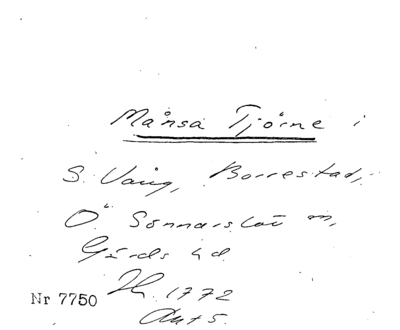 Månsa Tjörne i
S. Vång, Borrestad,
Ö Sönnarslöv m,
Gärds hd.
Nr 7750 1772